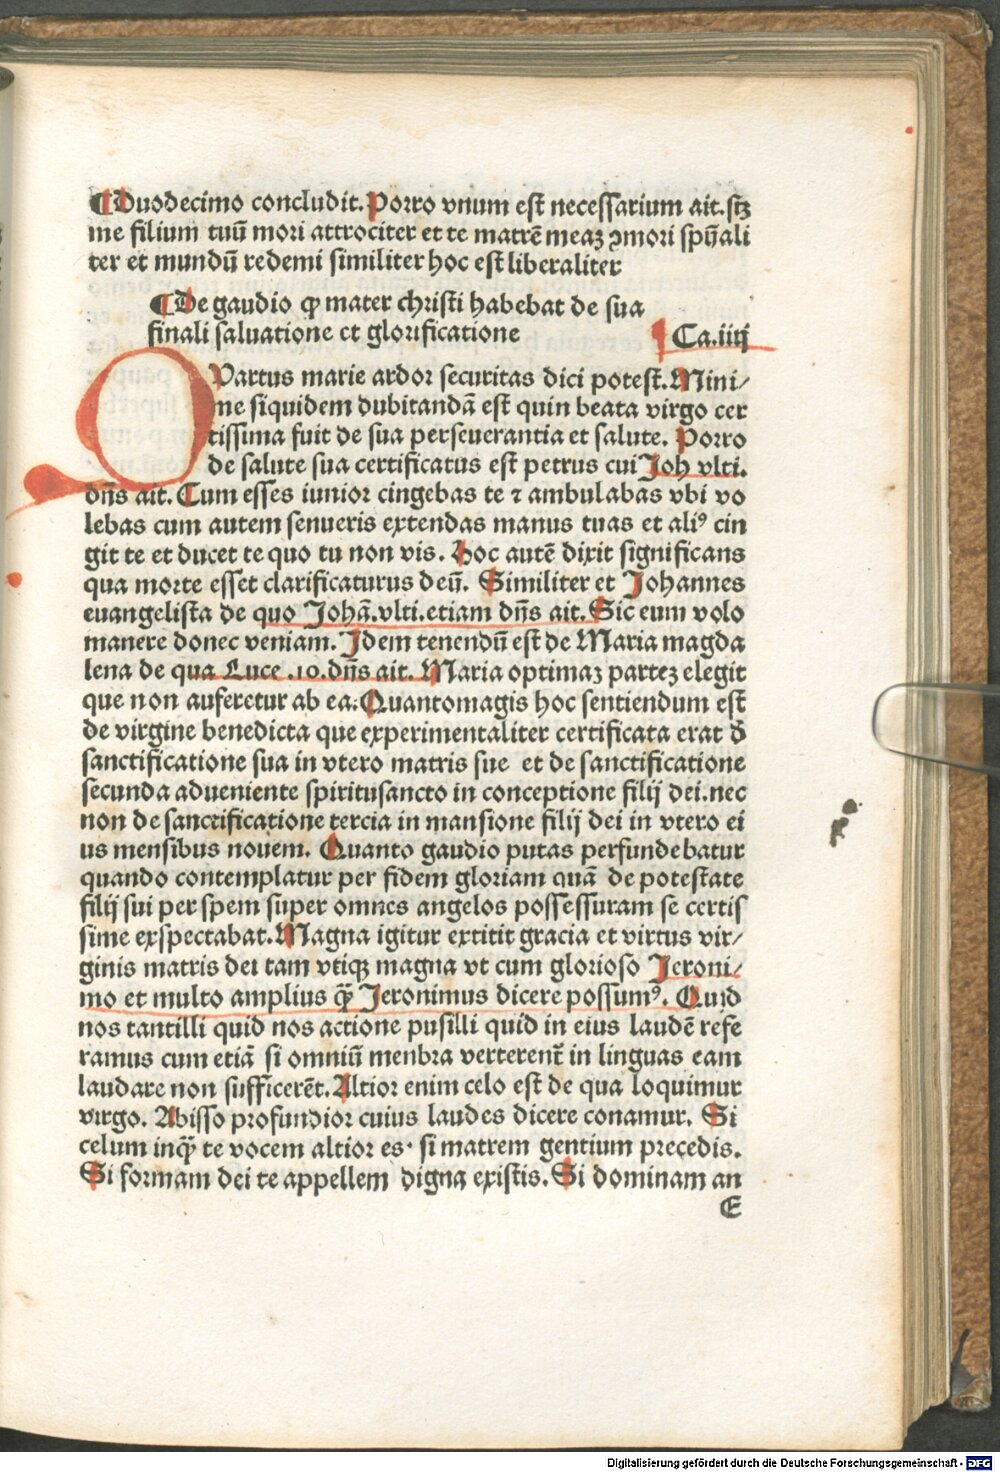 ¶ Duodecimo concludit. Porro vnum est necessarium ait. sꝫ
me filium tuū mori attrociter et te matrē meaꝫ ꝯmori spūali
ter et mundū redemi similiter hoc est liberaliter
¶ De gaudio ꝙ mater christi habebat de sua
finali saluatione et glorificatione ¶ Ca.iiij
QVartus marie ardor securitas dici potest. Mini/
me siquidem dubitandā est quin beata virgo cer
tissima fuit de sua perseuerantia et salute. Porro
de salute sua certificatus est petrus cui Joh vlti.
dn̄s ait. Cum esses iunior cingebas te ⁊ ambulabas vbi vo
lebas cum autem senueris extendas manus tuas et aliꝰ cin
git te et ducet te quo tu non vis. Hoc autē dixit significans
qua morte esset clarificaturus deū. Similiter et Johannes
euangelista de quo Johā.vlti.etiam dn̄s ait. Sic eum volo
manere donec veniam. Idem tenendū est de Maria magda
lena de qua Luce .10.dn̄s ait. Maria optimaꝫ parteꝫ elegit
que non auferetur ab ea: Quantomagis hoc sentiendum est
de virgine benedicta que experimentaliter certificata erat đ
sanctificatione sua in vtero matris sue et de sanctificatione
secunda adueniente spiritusancto in conceptione filij dei.nec
non de sanctificatione tercia in mansione filij dei in vtero ei
us mensibus nouem. Quanto gaudio putas perfundebatur
quando contemplatur per fidem gloriam quā de potestate
filij sui per spem super omnes angelos possessuram se certis
sime exspectabat. Magna igitur extitit gracia et virtus vir/
ginis matris dei tam vtiqꝫ magna vt cum glorioso Jeroni/
mo et multo amplius ꝙ̄ Jeronimus dicere possumꝰ. Quid
nos tantilli quid nos actione pusilli quid in eius laudē refe
ramus cum etiā si omniū menbra verterent̄ in linguas eam
laudare non sufficerēt. Altior enim celo est de qua loquimur
virgo. Abisso profundior cuius laudes dicere conamur. Si
celum inqꝫ̄ te vocem altior es· si matrem gentium precedis.
Si formam dei te appellem digna existis. Si dominam an
E
Digitalisierung gefördert durch die Deutsche Forschungsgemeinschaft - DFG